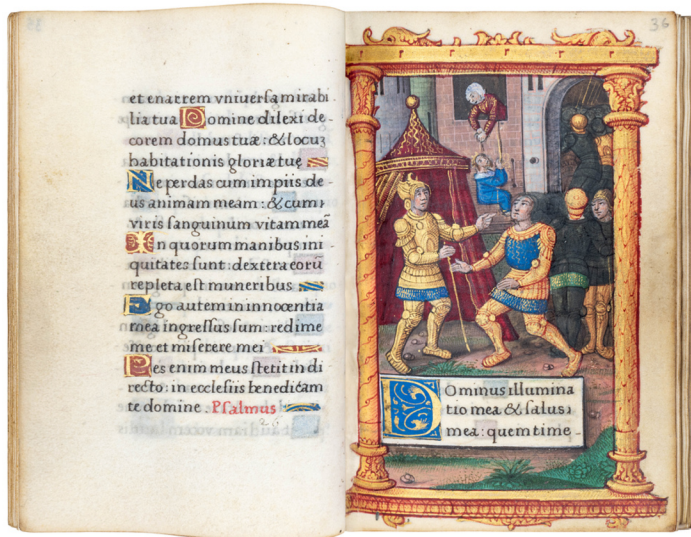 et enarrem vniuersa mirabi
lia tua Domine dilexi de-
corem domus tuæ: & locuʒ
habitationis gloriæ tuę
Ne perdas cum impiis de-
us animam meam: & cum
viris sanguinum vitam meā
In quorum manibus ini-
quitates sunt: dextera eorū
repleta est muneribus
Ego autem in innocentia
mea ingressus sum: redime
me et miserere mei
Pes enim meus stetit in di
recto: in ecclesiis benedicam
te domine. Psalmus
26
36
Dominus illumina
tio mea & salus
mea: quem time-